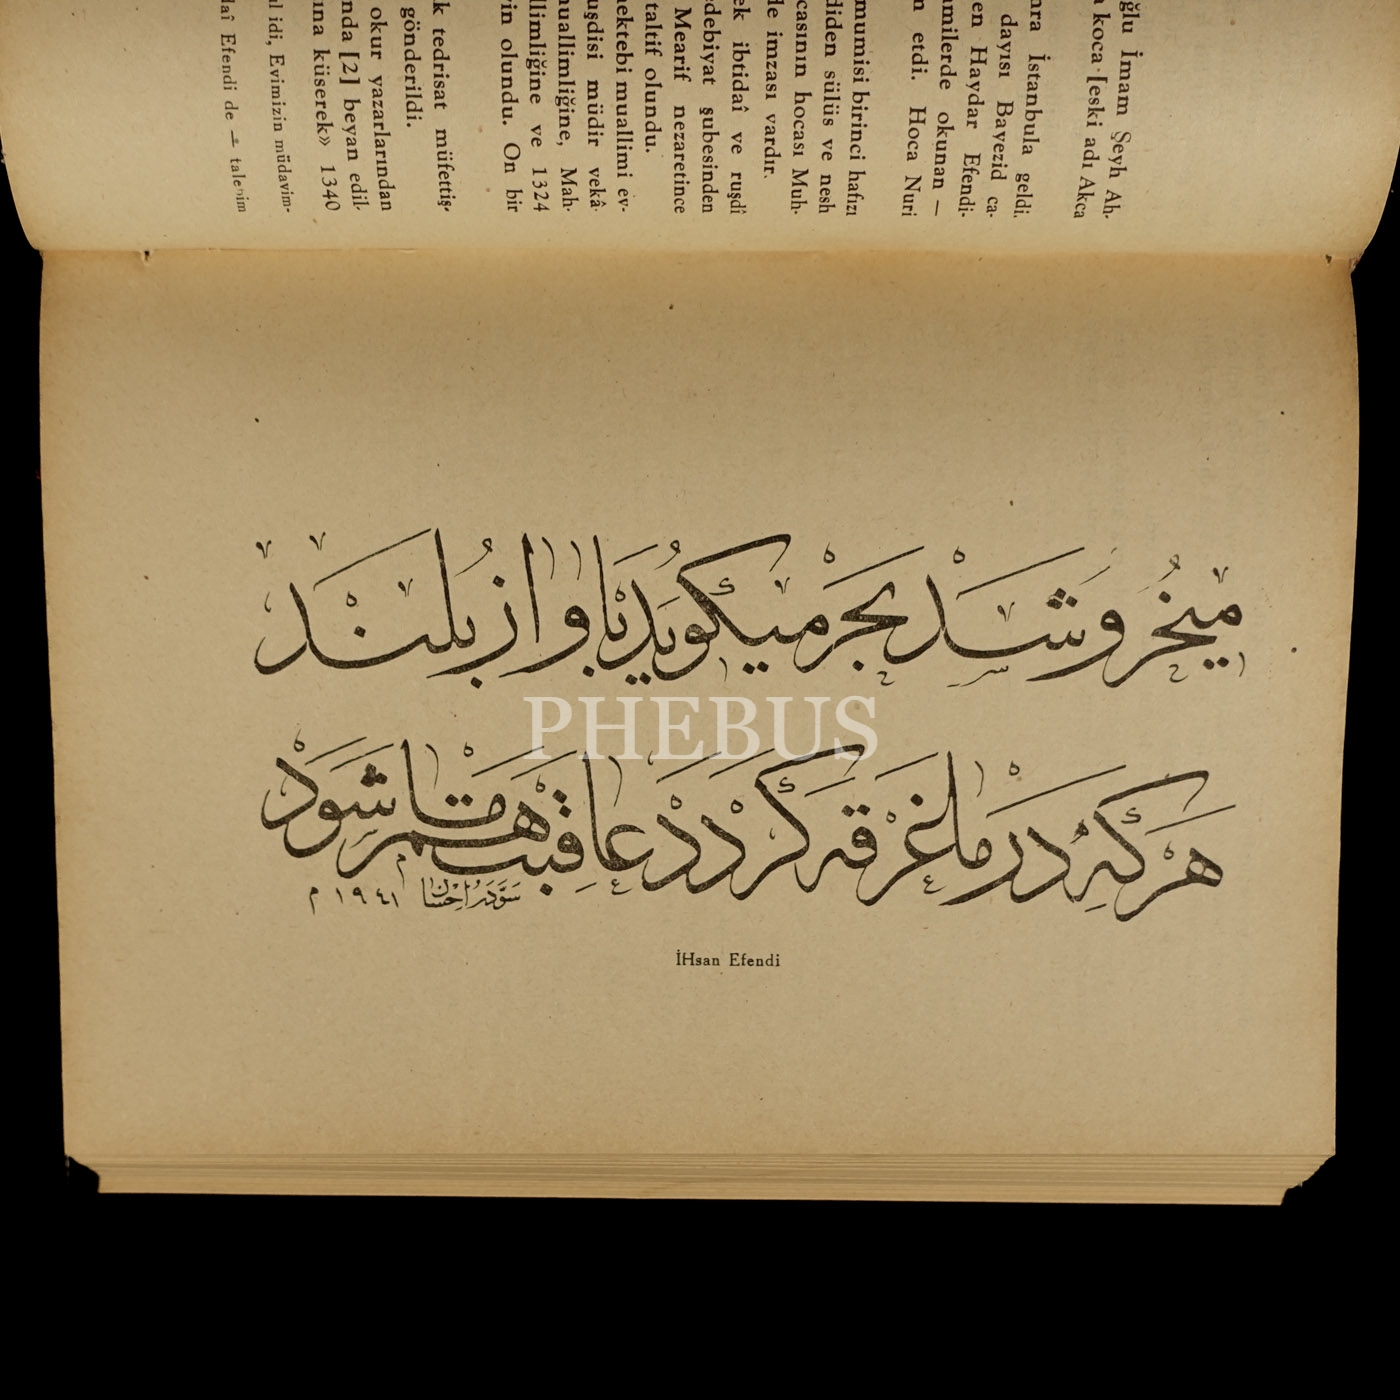 ğlu İmam Şeyh Ah-
koca [eski adı Akca
ra İstanbula geldi.
dayısı Bayezid ca-
en Haydar Efendi-
milerde okunan —
n etdi. Hoca Nuri
mumisi birinci hafızı
diden sülüs ve nesh
casının hocası Muh-
le imzası vardır.
ek ibtidaî ve ruşdî
debiyat şubesinden
Mearif nezaretince
taltif olundu.
mektebi muallimi ev-
uşdisi müdir vekâ-
uallimliğine, Mah-
llimliğine ve 1324
in olundu. On bir
k tedrisat müfettiş-
gönderildi.
okur yazarlarından
nda [2] beyan edil-
na küserek» 1340
l idi, Evimizin müdavim-
aî Efendi de —
میخروشد بحر میکوید باواز بلند
هرکه در ما غرقه کردد عاقبت هم ما شود
سوده احسان ١٩٤١ م
İHsan Efendi
PHEBUS